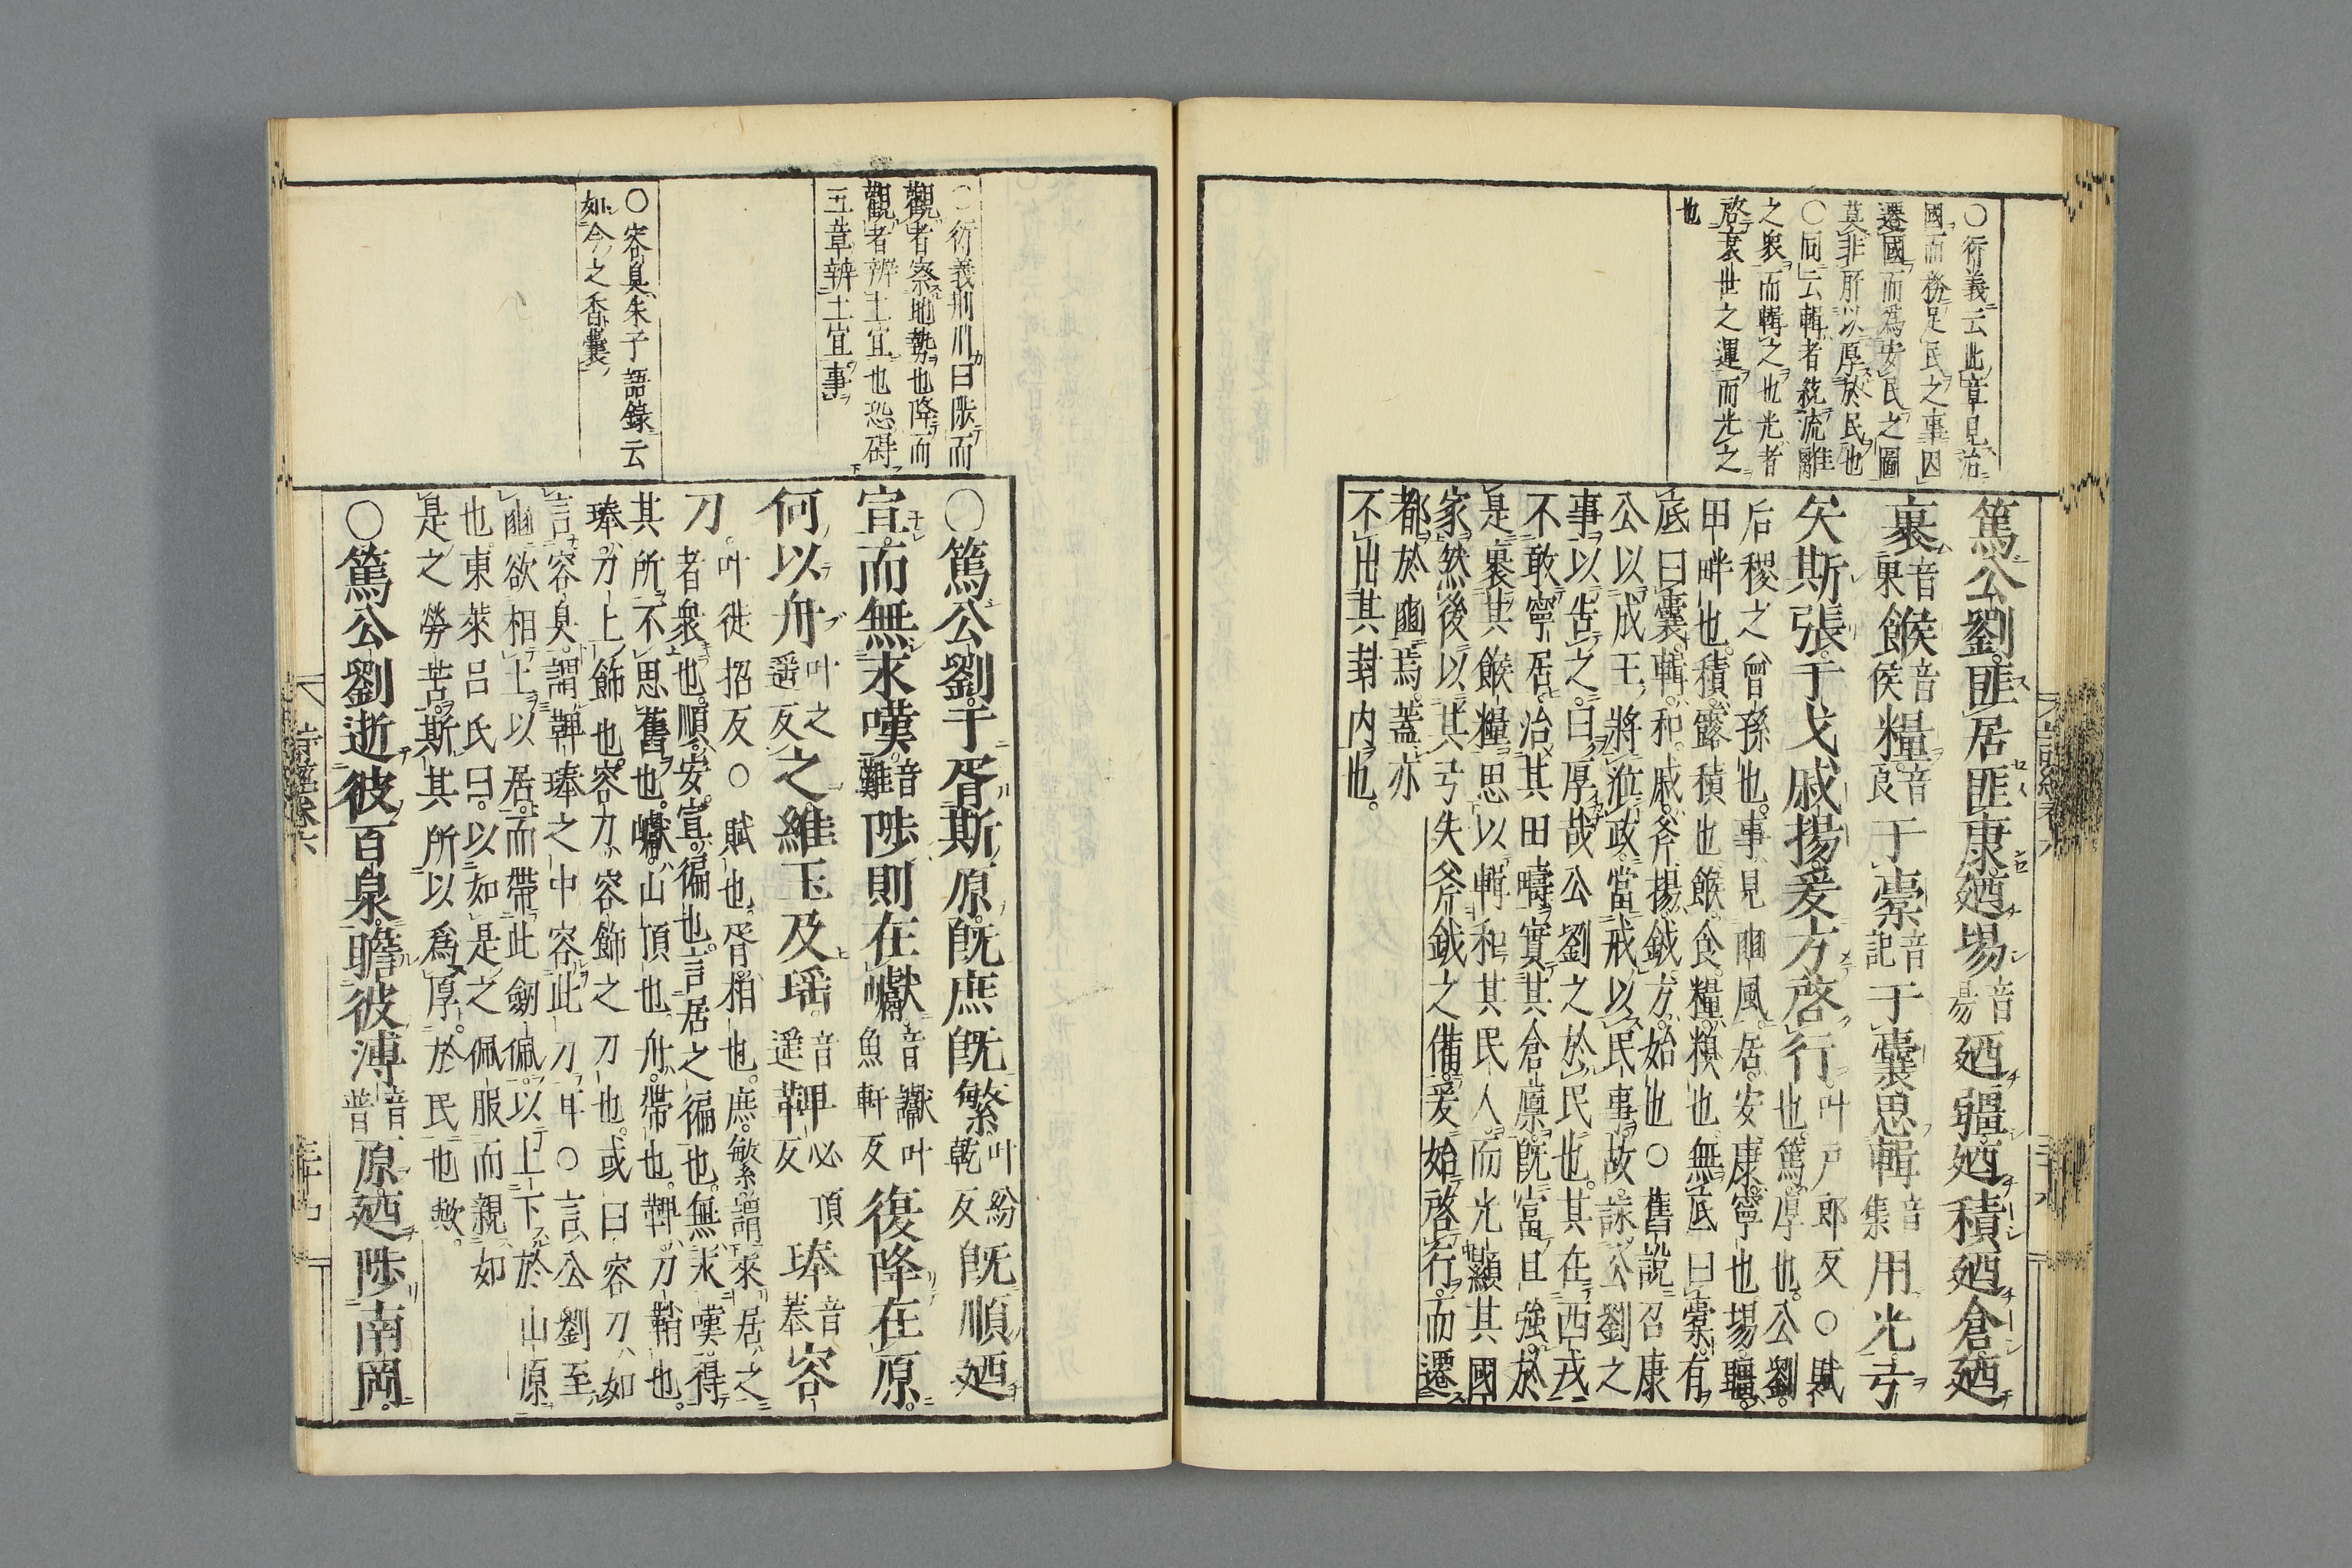 ○衍義云此章見治
國而務足民之事因
遷國而爲安民之圖
莫非所以厚於民也
○同云輯者統流離
之衆而輯之也光者
啓衰世之運而光之
也
篤公劉。匪居匪康。廼場音易廼疆。廼積廼倉。廼
裹音果餱音侯糧。音良于橐音託于囊。思輯音集用光。弓
矢斯張。干戈戚揚。爰方啓行。叶戸郎反○賦也。篤。厚也。公劉。
后稷之曾孫也。事見豳風。居。安。康。寧也。場疆。
田畔也。積。露積也。餱。食。糧。糗也。無底曰橐。有
底曰囊。輯。和。戚。斧。揚。鉞。方。始也○舊說召康
公以成王將涖政。當戒以民事。故詠公劉之
事以告之。曰。厚哉公劉之於民也。其在西戎
不敢寧居。治其田疇。實其倉廩。既富且強。於
是裹其餱糧。思以輯和其民人。而光顯其國
家。然後以其弓矢斧鉞之備。爰始啓行。而遷
都於豳焉。蓋亦
不出其封内也。
○衍義荆川曰陟而
觀者察地勢也降而
觀者辨土宜也恐碍
五章辨土宜事
○容臭朱子語錄云
如今之香囊
○篤公劉。于胥斯原。既庶既繁。叶紛乾反既順廼
宣。而無永嘆。音難陟則在巘。音讞叶魚軒反復降在原。
何以舟叶之遥反之。維玉及瑤。音遥鞞必頂反琫音菶容
刀。叶徒招反○賦也。胥。相也。庶。繁。謂來居之
者衆也。順。安。宣。徧也。言居之徧也。無永嘆。得
其所。不思舊也。巘。山頂也。舟。帶也。鞞。刀鞘也。
琫。刀上飾也。容刀。容飾之刀也。或曰容刀。如
言容臭。謂鞞琫之中容此刀耳○言公劉至
豳。欲相土以居。而帶此劒佩。以上下於山原
也。東萊呂氏曰。以如是之佩服。而親如
是之勞苦。斯其所以爲厚於民也歟。
○篤公劉。逝彼百泉。瞻彼溥音普原。廼陟南岡。
詩經卷六